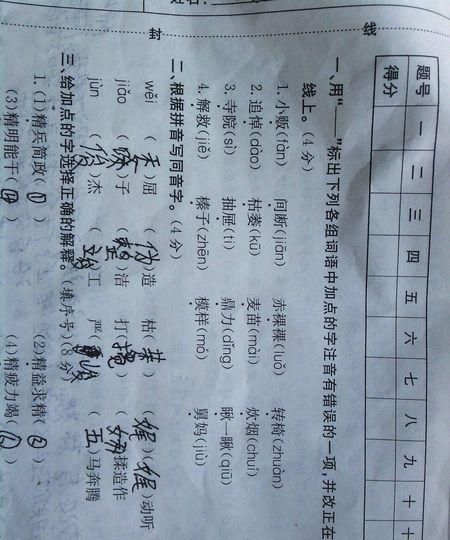 封 线
题号 一 二 三 四 五 六 七 八 九 十 十
得分
一、用“——”标出下列各组词语中加点的字注音有错误的一项,并改正在
线上。(4分)
1. 小贩(fàn) 间断(jiān) 赤裸裸(luǒ) 转椅(zhuàn)
2. 追悼(dào) 枯萎(kū) 麦苗(mài) 炊烟(chuí)
3. 寺院(sì) 抽屉(tì) 鼎力(dǐng) 瞅一瞅(qiū)
4. 解救(jiě) 榛子(zhēn) 模样(mó) 舅妈(jiù)
二、根据拼音写同音字。(4分)
wěi ( )屈 (伪)造 枯( ) (娓)(娓)动听
jiǎo ( )子 ( )洁 打( ) ( )揉造作
jùn (俊)杰 ( )工 严( ) (五)马奔腾
三、给加点的字选择正确的解释。(填序号)(8分)
1. (1)精兵简政( ) (2)精益求精( )
(3)精明能干( ) (4)精疲力竭( )